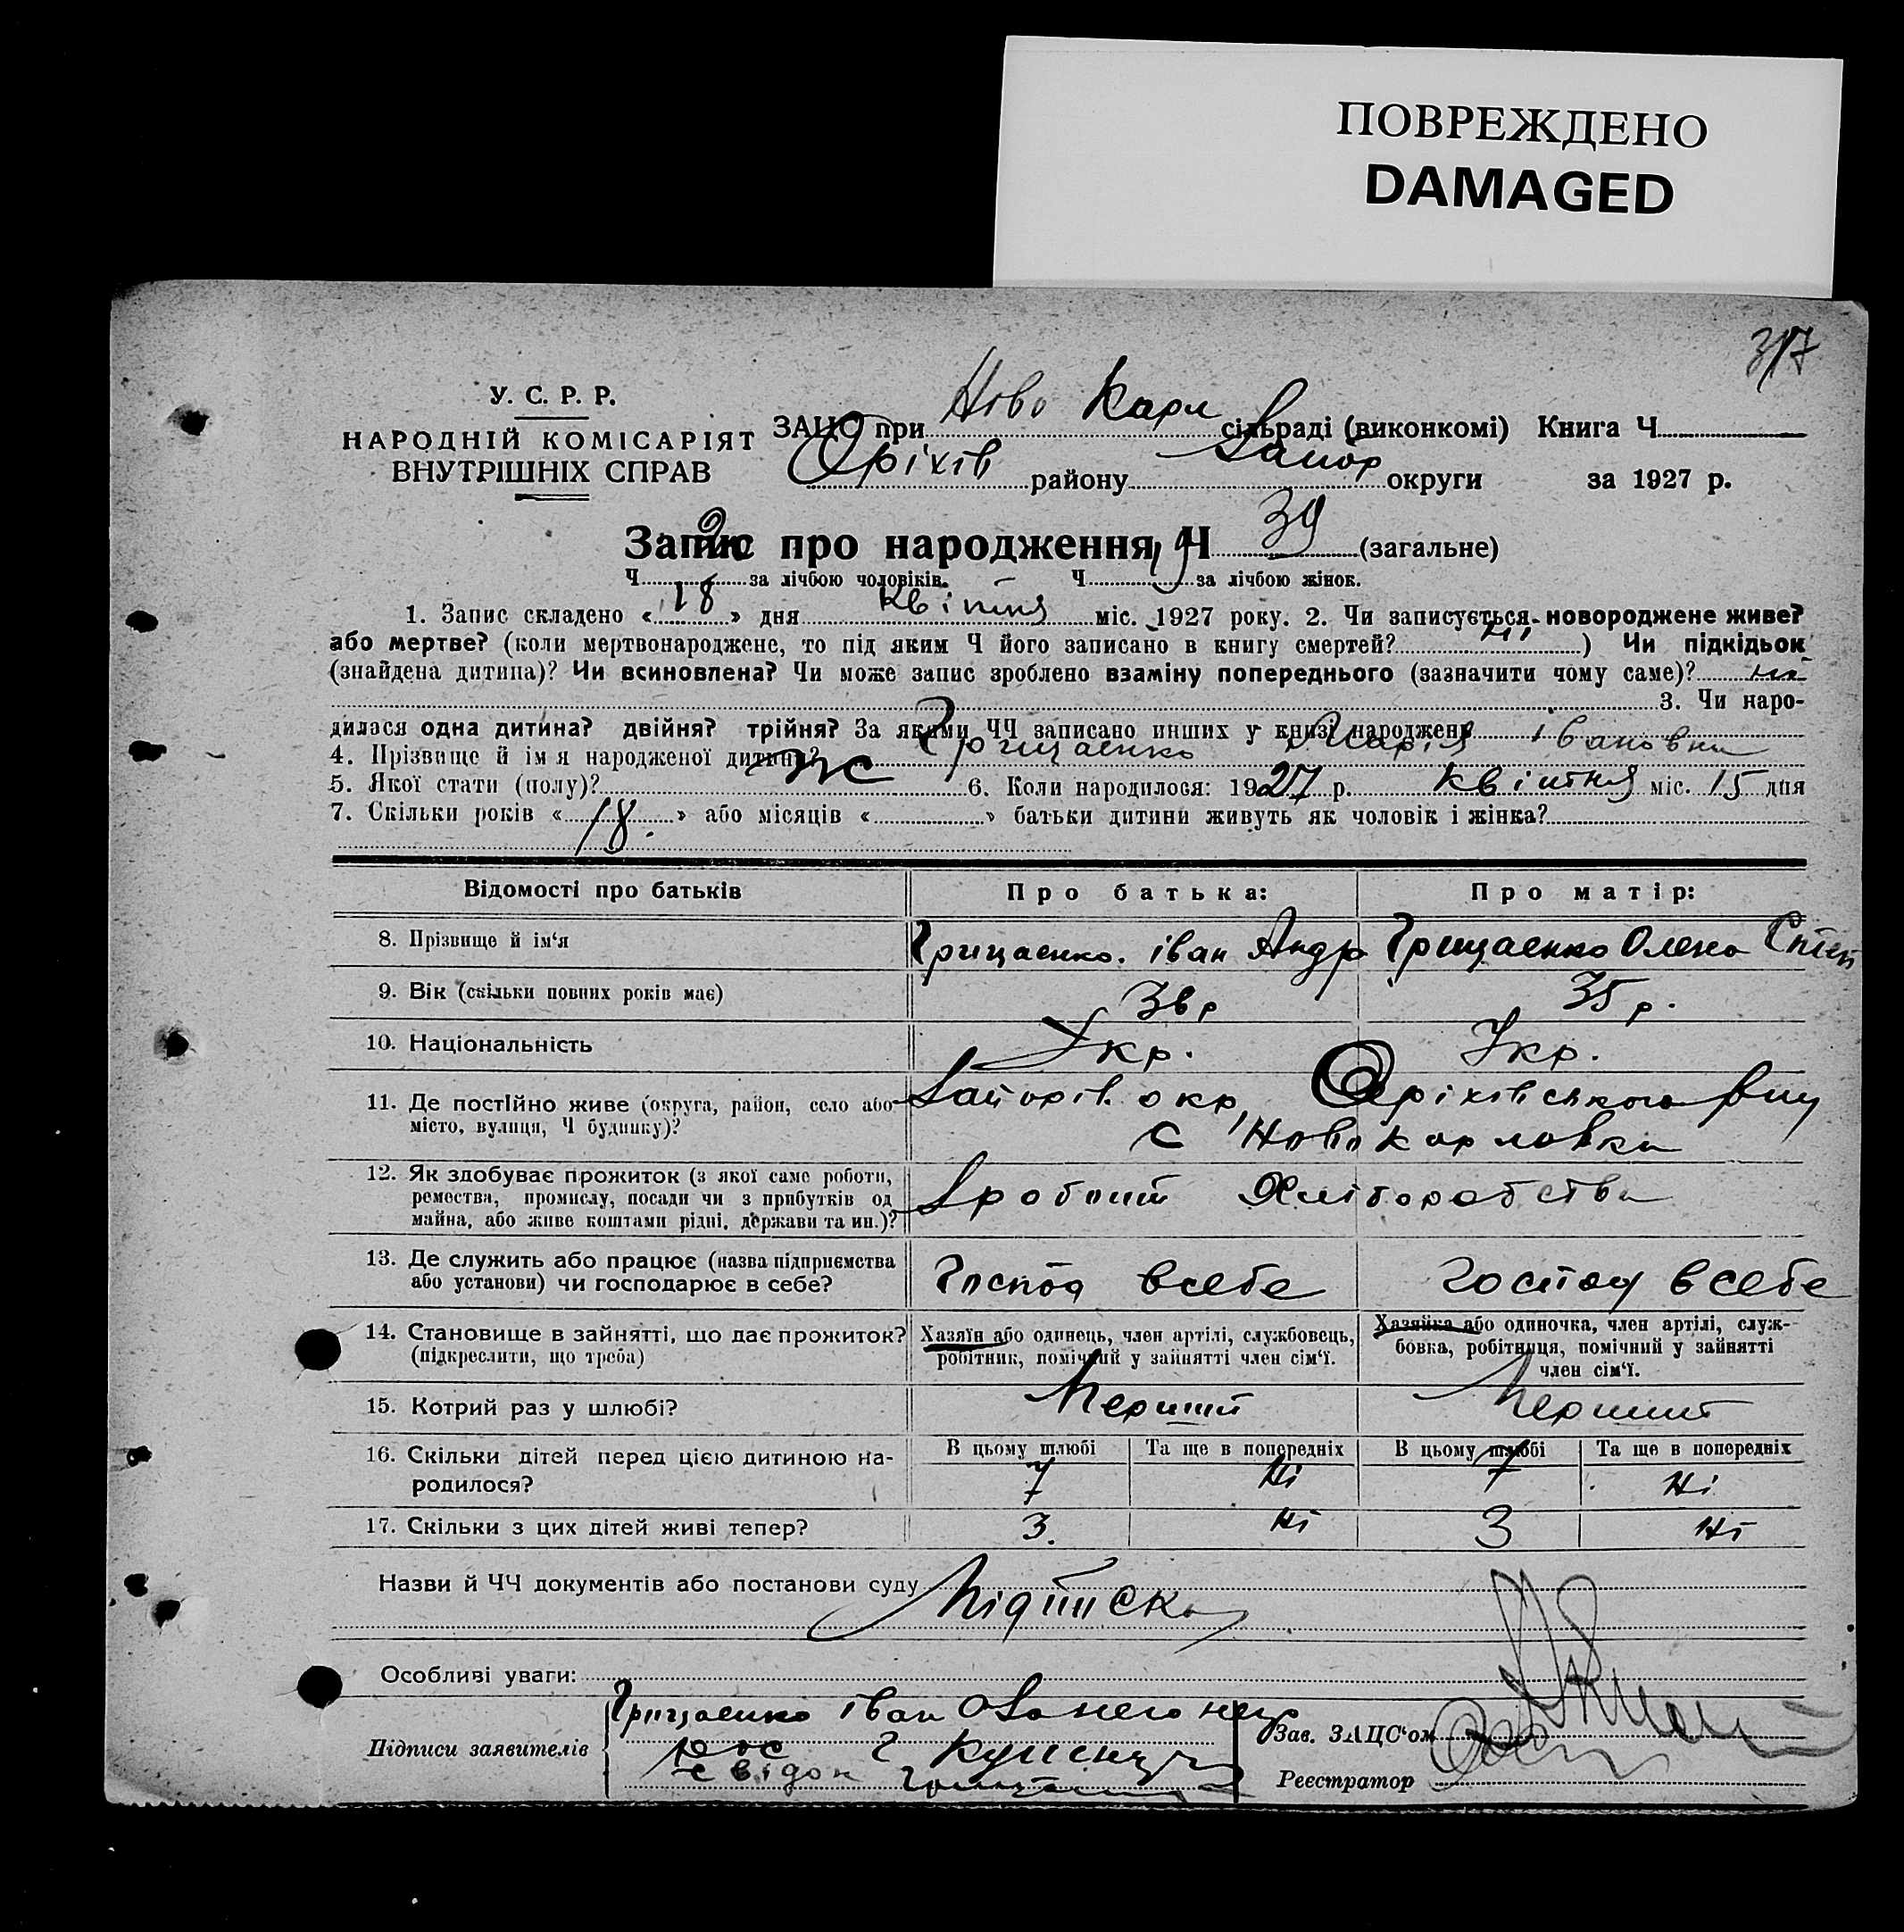 ПОВРЕЖДЕНО
DAMAGED
317
У. С. Р. Р.
НАРОДНІЙ КОМІСАРІЯТ
ВНУТРІШНІХ СПРАВ
ЗАЦС при Ново Карл сільраді (виконкомі) Книга Ч
Оріхів району Запор округи за 1927 р.
Запис про народження Ч 39 (загальне)
Ч за лічбою чоловіків. Ч 19 за лічбою жінок.
1. Запис складено « 18 » дня Квітня міс. 1927 року. 2. Чи записується новороджене живе?
або мертве? (коли мертвонароджене, то під яким Ч його записано в книгу смертей? ні ) Чи підкідьок
(знайдена дитина)? Чи всиновлена? Чи може запис зроблено взаміну попереднього (зазначити чому саме)? ні
3. Чи наро-
дилася одна дитина? двійня? трійня? За якими ЧЧ записано инших у книзі народжень
4. Прізвище й ім'я народженої дитини? Грицаенко Марія івановна
5. Якої стати (полу)? ж 6. Коли народилося: 1927 р. квітня міс. 15 дня
7. Скільки років « 18. » або місяців « » батьки дитини живуть як чоловік і жінка?
Відомості про батьків Про батька: Про матір:
8. Прізвище й ім'я Грицаенко. іван Андр Грицаенко Олена Степ
9. Вік (скільки повних років має) 35 р.
10. Національність Укр. Укр.
11. Де постійно живе (округа, район, село або Запоріз. окр, Оріхівського
місто, вулиця, Ч будинку)? с Ново карловка
12. Як здобуває прожиток (з якої саме роботи,
ремества, промислу, посади чи з прибутків од Зроботи Хліборобства
майна, або живе коштами рідні, держави та ин.)?
13. Де служить або працює (назва підприємства
або установи) чи господарює в себе? Господ всебе Господ всебе
14. Становище в зайнятті, що дає прожиток? Хазяїн або одинець, член артілі, службовець, Хазяйка або одиночка, член артілі, служ-
(підкреслити, що треба) робітник, помічний у зайнятті член сім'ї. бовка, робітниця, помічний у зайнятті
член сім'ї.
15. Котрий раз у шлюбі? Перший Перший
16. Скільки дітей перед цією дитиною на- В цьому шлюбі Та ще в попередніх В цьому шлюбі Та ще в попередніх
родилося? 7 Ні 7 Ні
17. Скільки з цих дітей живі тепер? 3. Ні 3 Ні
Назви й ЧЧ документів або постанови суду Підписка
Особливі уваги:
Грицаенко іван
Підписи заявителів Зав. ЗАЦС'ом
свідок
Реєстратор